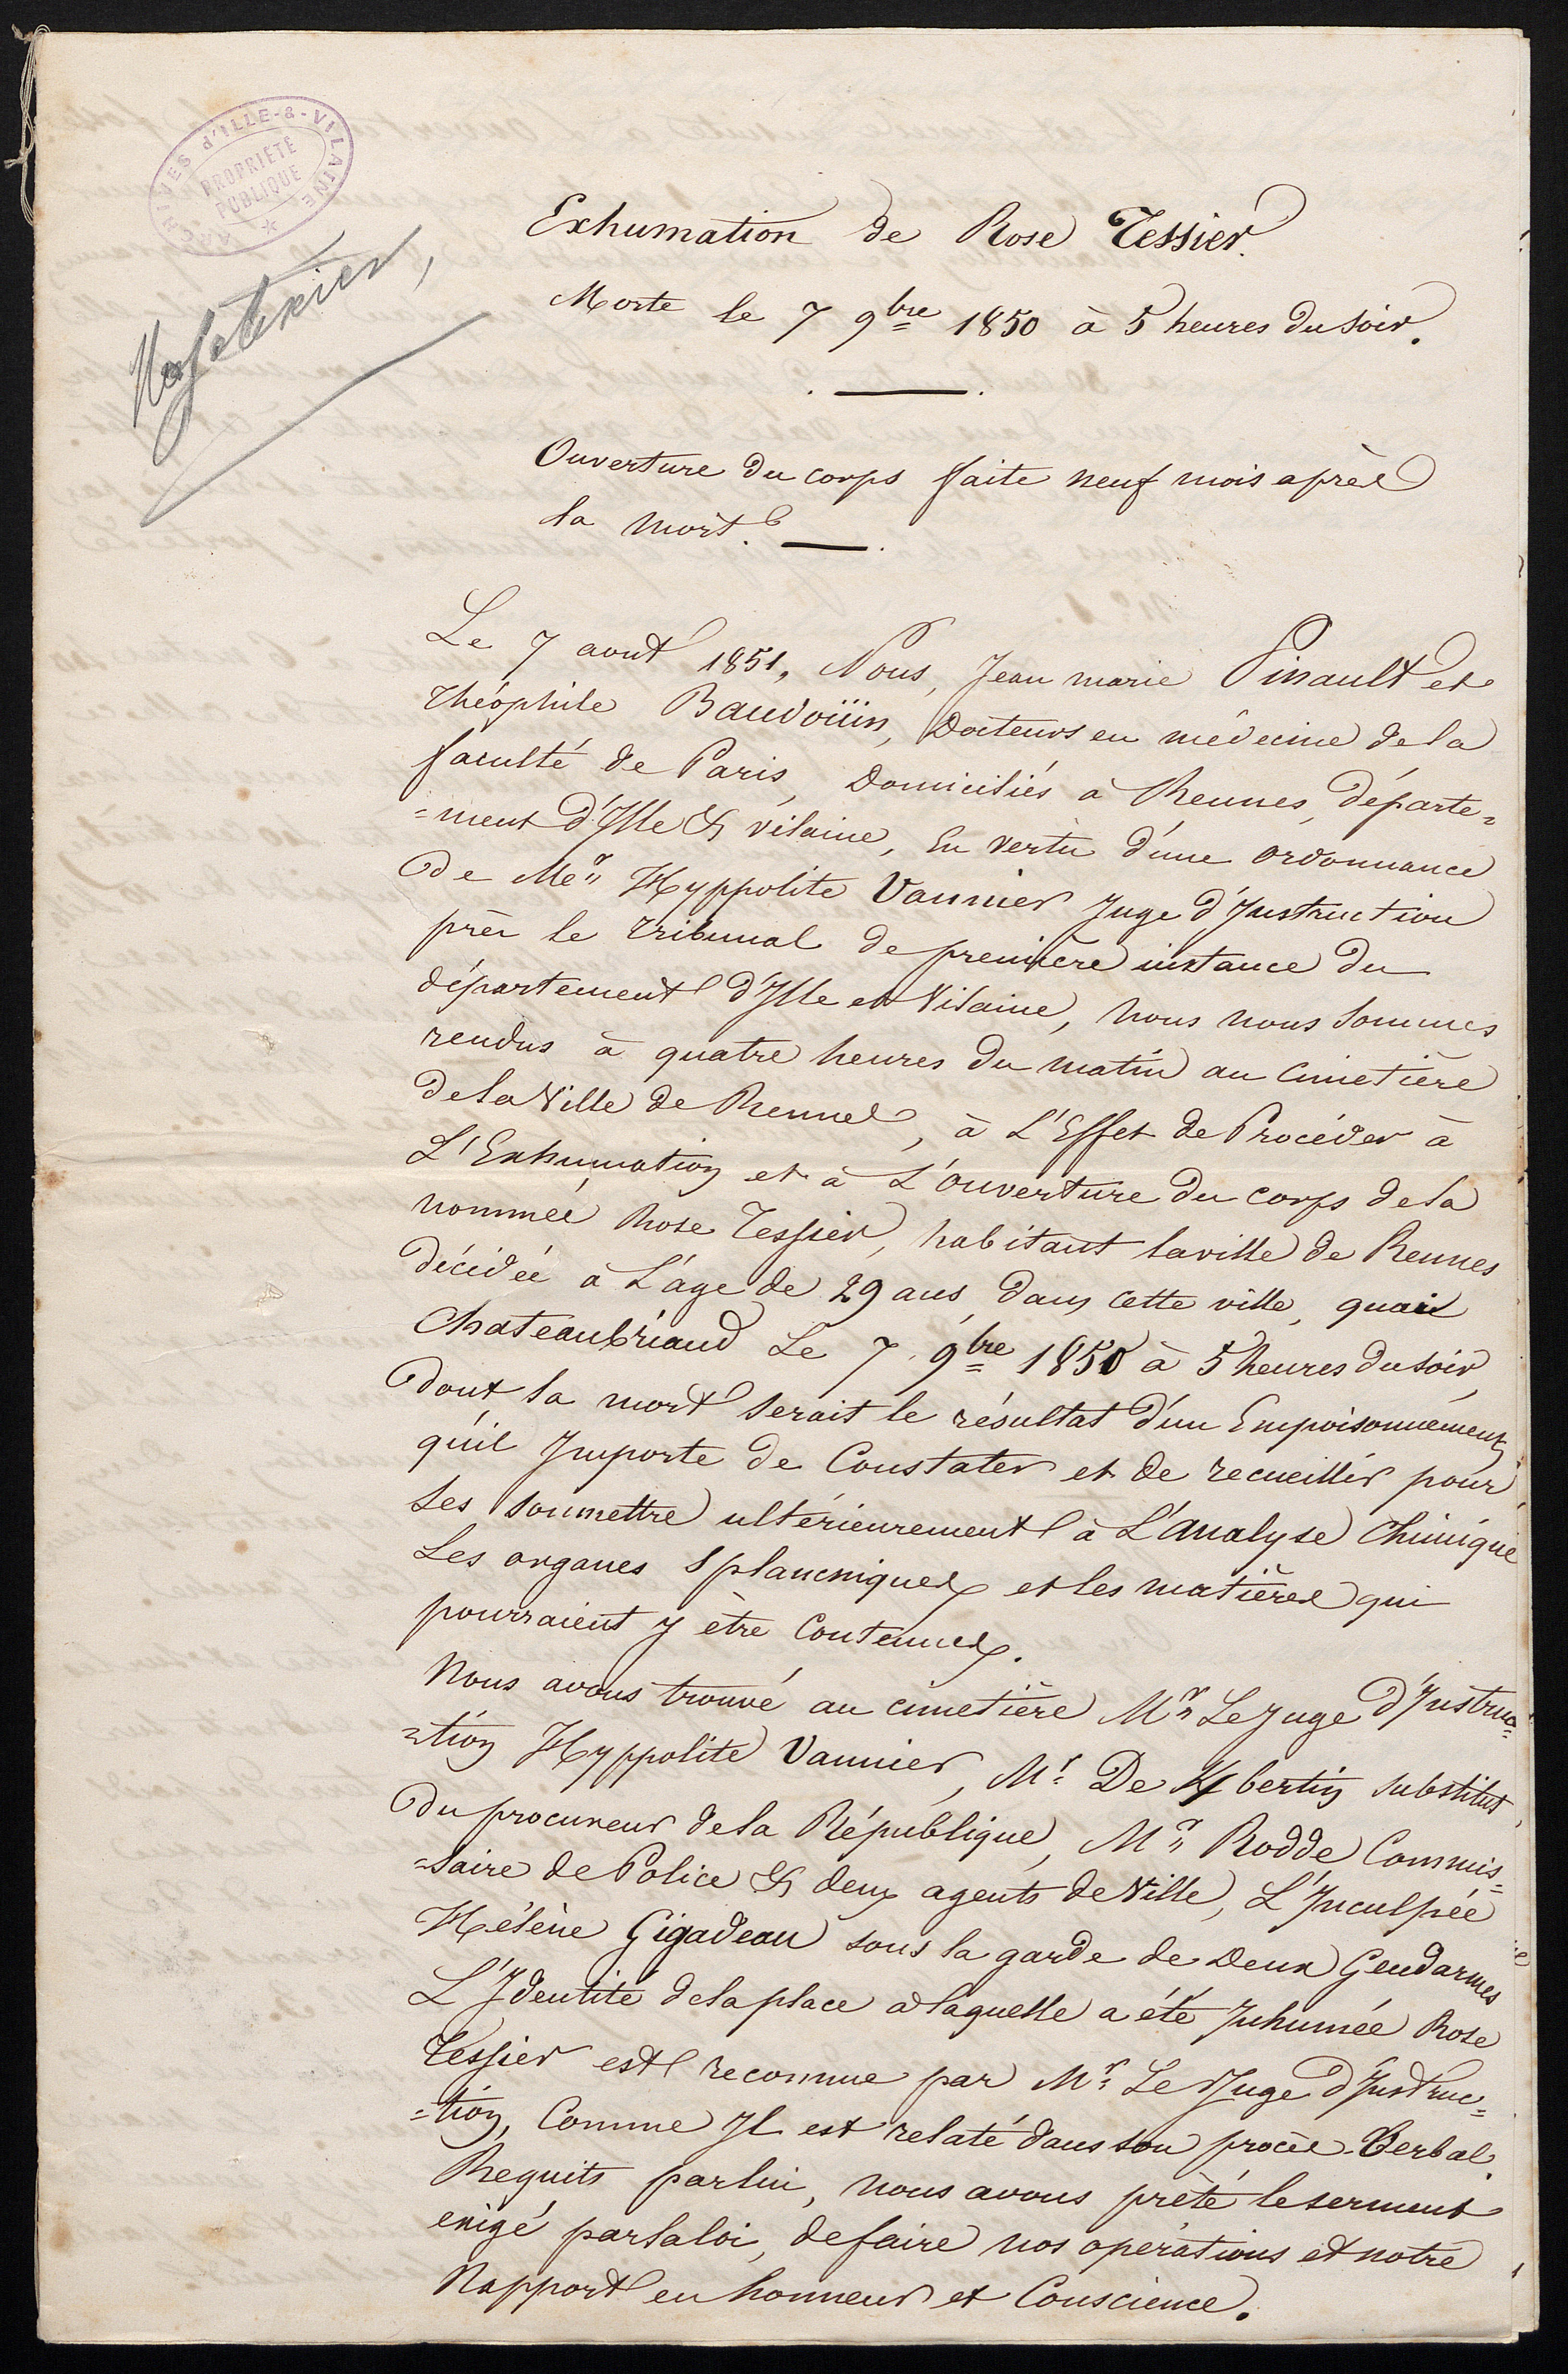 ARCHIVES d'ILLE-&-VILAINE
PROPRIÉTÉ
PUBLIQUE
Exhumation de Rose Tessier.
Morte le 7 9bre 1850 à 5 heures du soir.
Ouverture du corps faite neuf mois après
la mort.
Le 7 aout 1851, Nous, Jean marie Pinault et
théophile Baudoüin, Docteurs en médecine de la
faculté de Paris, Domiciliés à Rennes, départe=
=ment d'Ille & vilaine, En vertu d'une ordonnance
De Mer Hyppolite Vannier Juge d'Instruction
près le tribunal de première instance du
département d'Ille et Vilaine, nous nous sommes
rendus à quatre heures du matin au Cimetière
de la Ville de Rennes, à L'Effet de Procéder à
L'Exhumation et à L'ouverture du corps de la
nommée Rose Tessier, habitant la ville de Rennes
décédée à L'âge de 29 ans, dans cette ville, quai
Chateaubriand Le 7 9bre 1850 à 5 heures du soir,
Dont la mort serait le résultat d'un Empoisonnement
qu'il Importe de Constater et de recueillir pour
Les soumettre ultérieurement à L'Analyse Chimique
Les organes splancniques et les matières qui
pourraient y être Contenues.
Nous avons trouvé au cimetière Mr Le Juge d'Instruc=
=tion Hyppolite Vannier, Mr De Kbertin substitut
Du procureur de la République, Mr Rodde Commis=
=saire de Police & deux agents de Ville, L'Inculpée
Hélène Gigadeau sous la garde de Deux Gendarmes
L'Identité de la place à laquelle a été Inhumée Rose
Tessier est reconnue par Mr Le Juge d'Instruc=
=tion, Comme Il est relaté dans son procès-Verbal.
Requits par lui, nous avons prêté le serment
exigé par la loi, de faire nos opérations et notre
Rapport en honneur et Conscience.